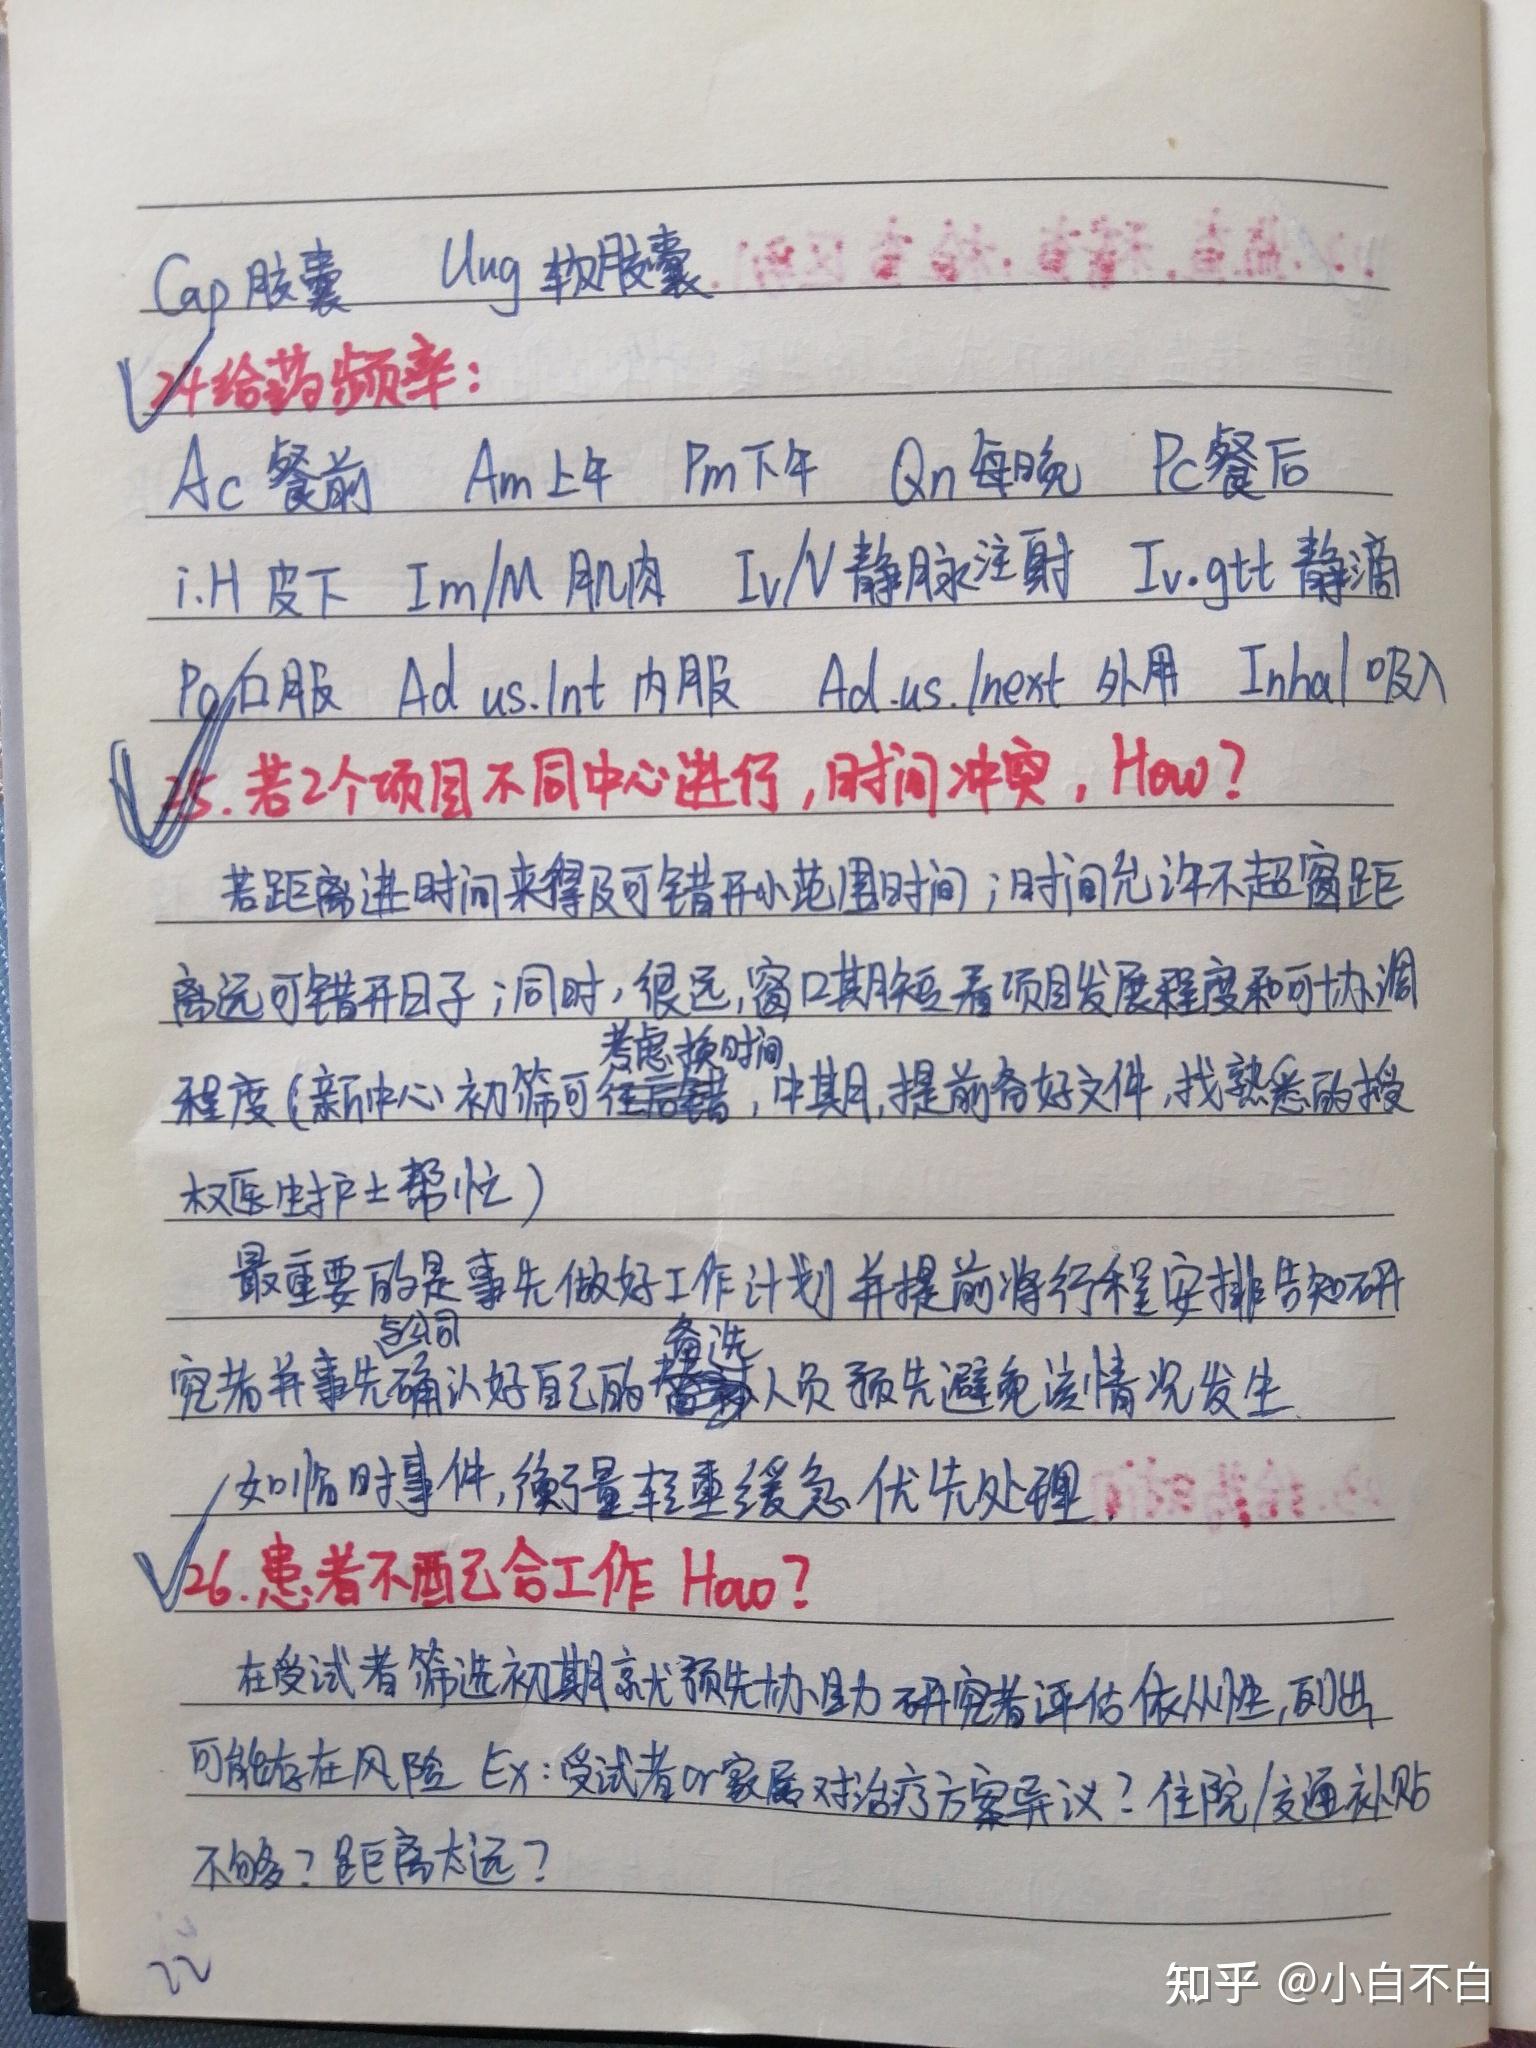 Cap 胶囊 Ung 软胶囊
24 给药频率：
Ac 餐前 Am 上午 Pm 下午 Qn 每晚 Pc 餐后
i.H 皮下 Im/M 肌肉 Iv/V 静脉注射 Iv.gtt 静滴
Po 口服 Ad us.Int 内服 Ad.us.Inext 外用 Inhal 吸入
25. 若2个项目不同中心进行，时间冲突，How？
若距离进时间来得及可错开小范围时间；时间允许不超窗距
离远可错开日子；同时，很远，窗口期短看项目发展程度和可协调
考虑换时间
程度（新中心初筛可往后错，中期，提前备好文件，找熟悉的授
权医生护士帮忙）
最重要的是事先做好工作计划并提前将行程安排告知研
与公司 备选
究者并事先确认好自己的人员预先避免该情况发生.
如临时事件，衡量轻重缓急优先处理.
26. 患者不配合工作 How？
在受试者筛选初期就预先协助研究者评估依从性，列出
可能存在风险 Ex：受试者or家属对治疗方案异议？住院/交通补贴
不够？距离太远？
22
知乎 @小白不白